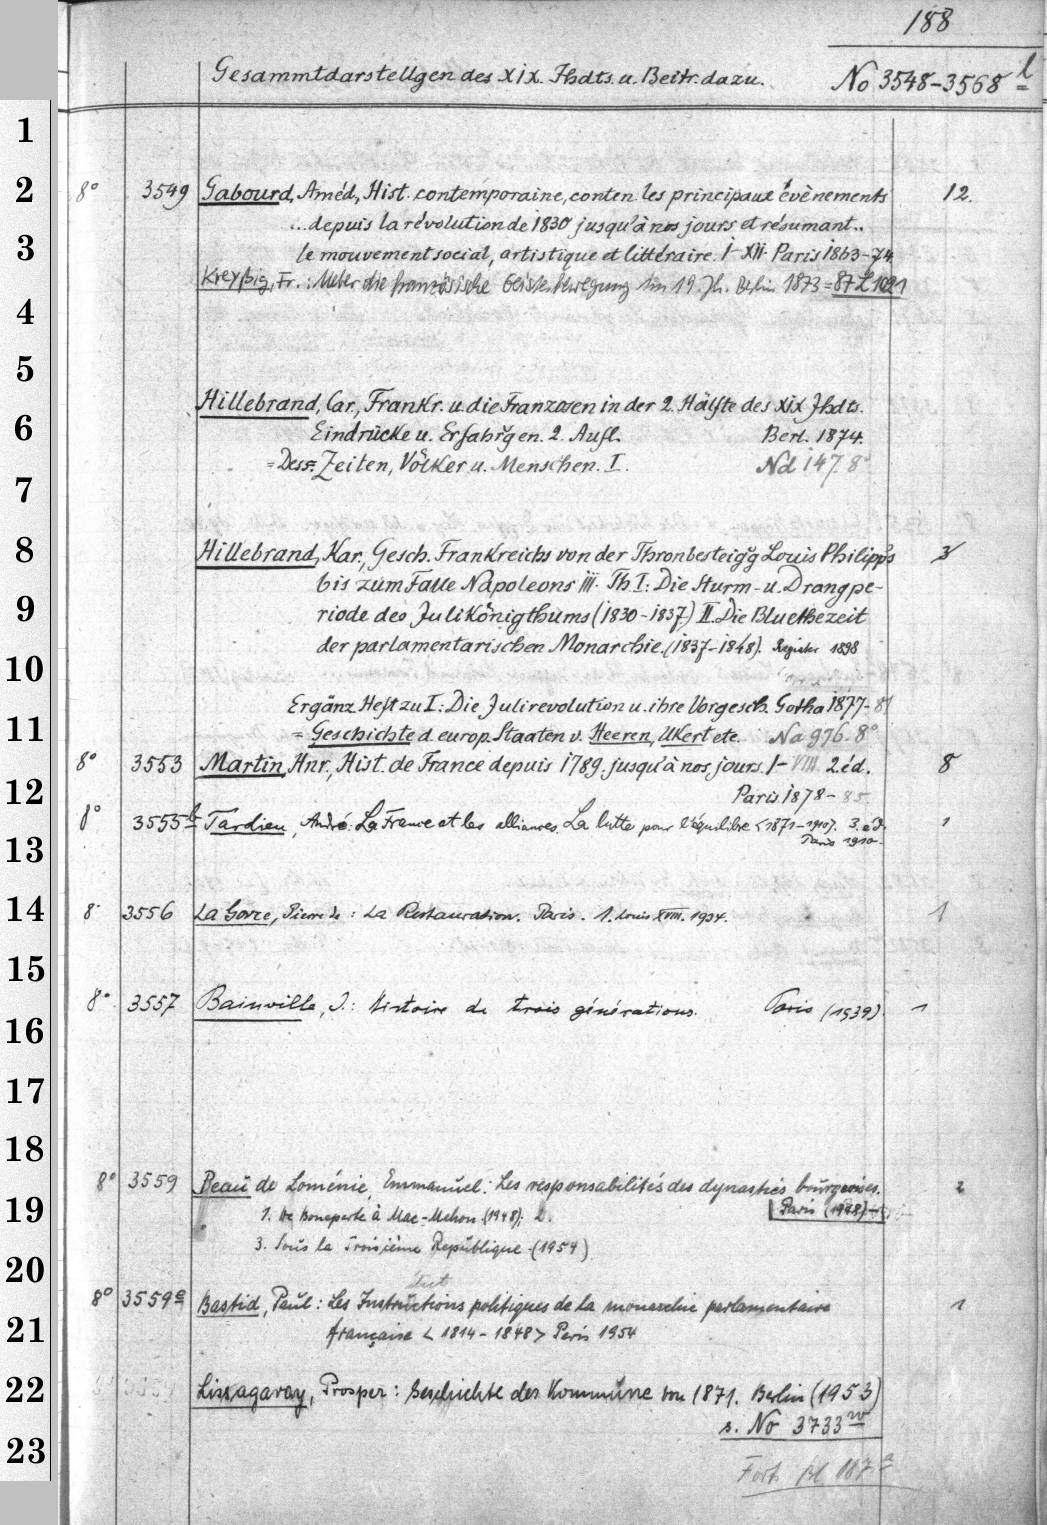 188
Gesammtdarstellgen des XIX. Jhdts. u. Beitr. dazu. No 3548-3568 l
1
2 8° 3549 Gabourd, Améd, Hist. contemporaine, conten. les principaux évènements 12.
...depuis la révolution de 1830 jusqu'à nos jours et résumant..
3 le mouvement social, artistique et littéraire. I-XII. Paris 1863-74
Kreyßig, Fr.: Ueber die französische Geistesbewegung im 19. Jh. Berlin 1873 = 87 L 1091
4
5
Hillebrand, Car., Frankr. u. die Franzosen in der 2. Hälfte des XIX Jhdts.
6 Eindrücke u. Erfahrgen. 2. Aufl. Berl. 1874.
= Dess. Zeiten, Völker u. Menschen. I. Nd 147. 8°
7
8 Hillebrand, Kar., Gesch. Frankreichs von der Thronbesteigg Louis Philipp's 3
bis zum Falle Napoleons III. Th I: Die Sturm- u. Drangpe-
9 riode des Julikönigthums (1830-1837) II. Die Bluethezeit
der parlamentarischen Monarchie. (1837-1848). Register 1898
10
Ergänz. Heft zu I: Die Julirevolution u. ihre Vorgesch. Gotha 1877-81
11 = Geschichte d. europ. Staaten v. Heeren, Ukert etc. Na 976. 8°
8° 3553 Martin, Hnr., Hist. de France depuis 1789. jusqu'à nos jours. I-VIII. 2. éd. 8
12 Paris 1878-85.
8° 3555 b Tardieu, André: La France et les alliances. La lutte pour l'équilibre <1871-1910>. 3. éd. 1
13 Paris 1910.
14 8° 3556 La Gorce, Pierre de: La Restauration. Paris. 1. Louis XVIII. 1934. 1
15
8° 3557 Bainville, J.: Histoire de trois générations. Paris (1939). 1
16
17
18
8° 3559 Beau de Loménie, Emmanuel: Les responsabilités des dynasties bourgeoises. 2
19 1. De Bonaparte à Mac-Mahon (1948); 2. Paris (1948)-
3. Sous la Troisième République (1954)
20 titut
8° 3559a Bastid, Paul: Les Instructions politiques de la monarchie parlamentaire 1
21 française <1814-1848> Paris 1954
22 Lissagaray, Prosper: Geschichte der Kommune von 1871. Berlin (1953)
s. No 3733 w
23
Forts. Bl 187 a